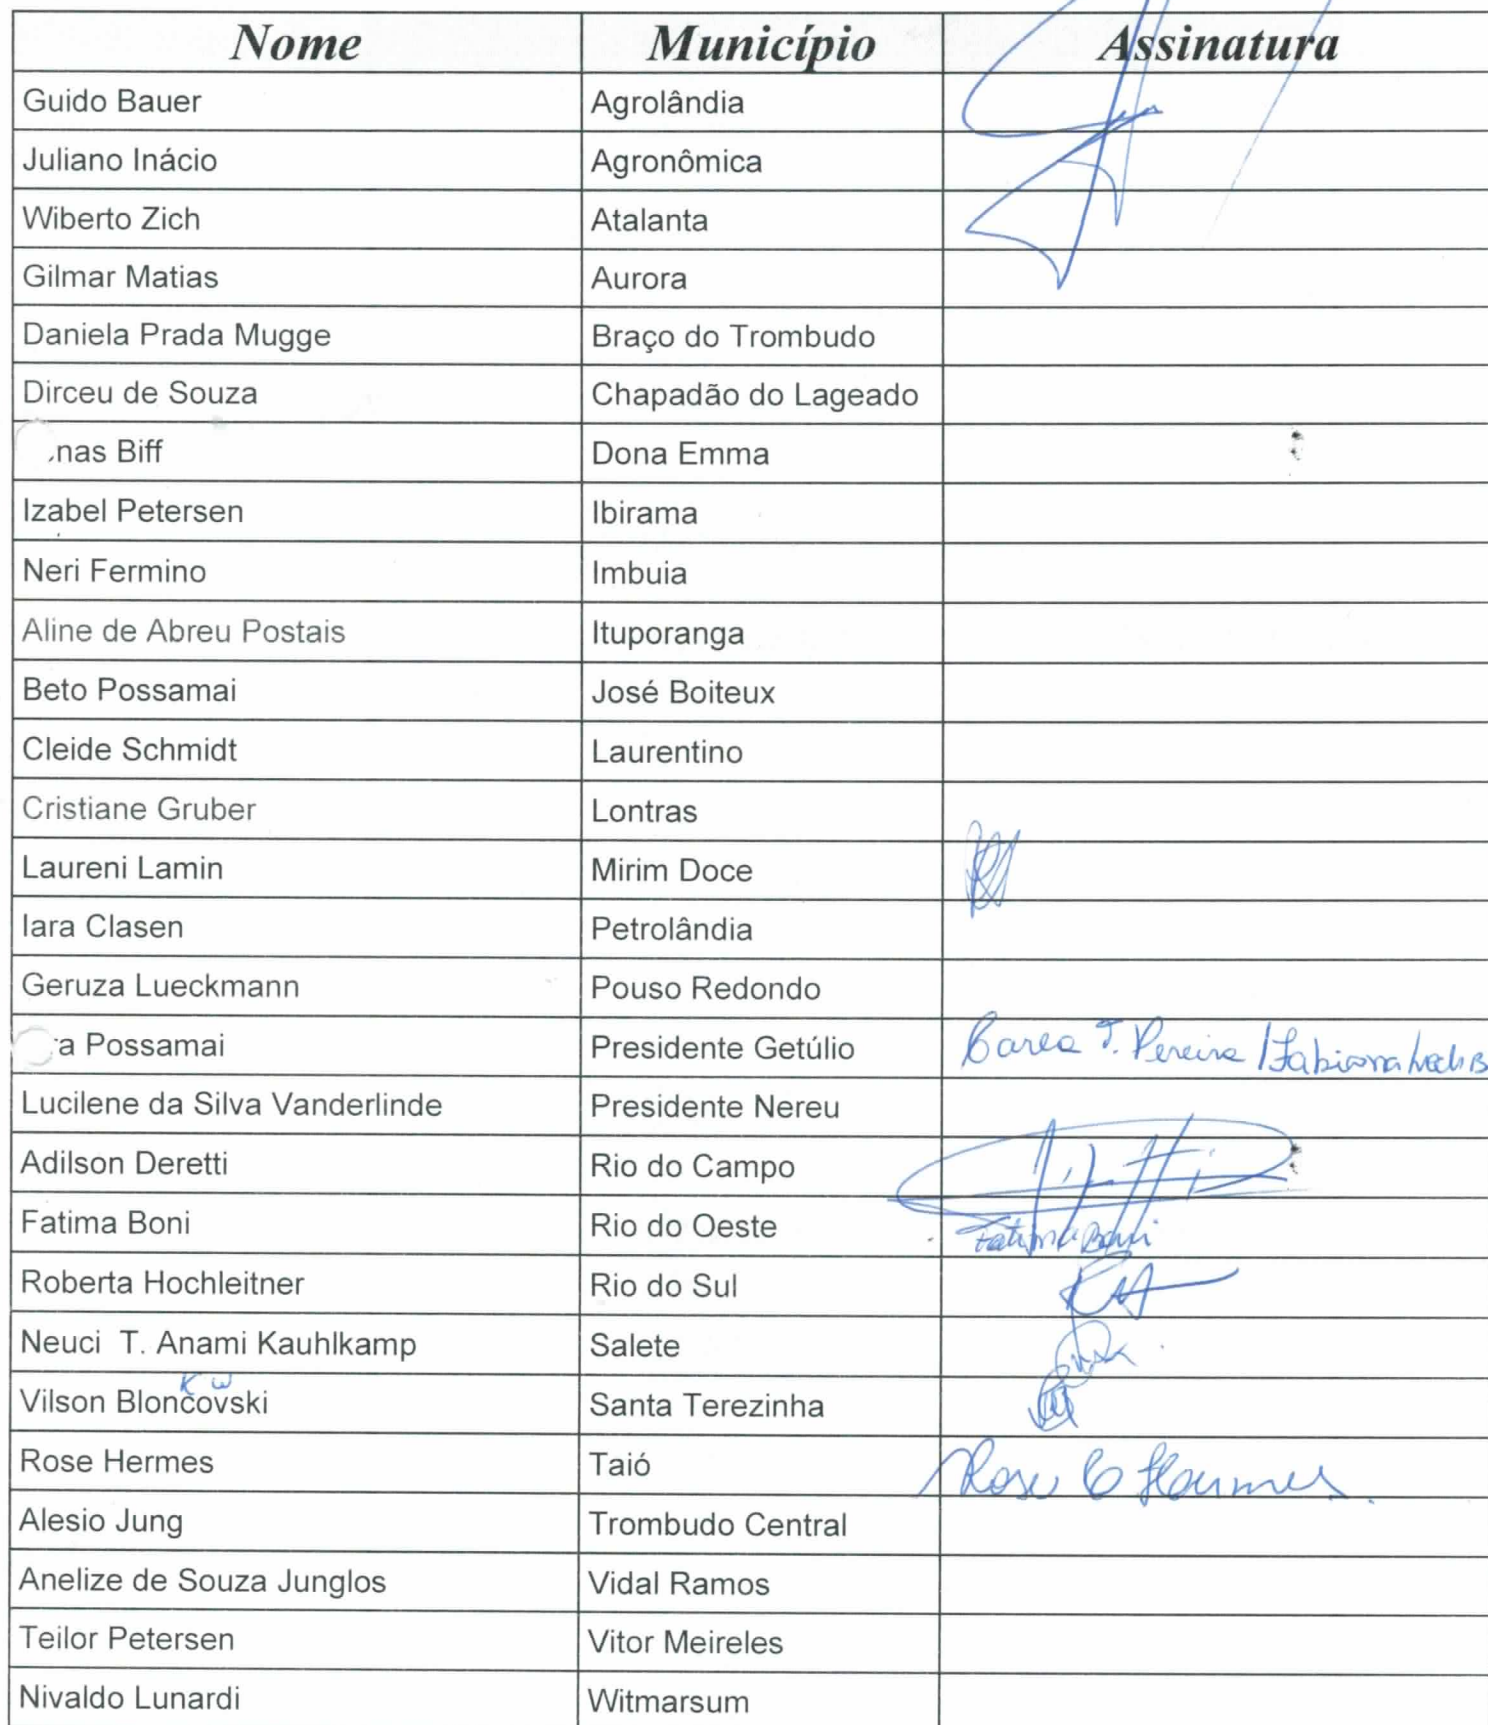 Nome Município Assinatura
Guido Bauer Agrolândia
Juliano Inácio Agronômica
Wiberto Zich Atalanta
Gilmar Matias Aurora
Daniela Prada Mugge Braço do Trombudo
Dirceu de Souza Chapadão do Lageado
nas Biff Dona Emma
Izabel Petersen Ibirama
Neri Fermino Imbuia
Aline de Abreu Postais Ituporanga
Beto Possamai José Boiteux
Cleide Schmidt Laurentino
Cristiane Gruber Lontras
Laureni Lamin Mirim Doce
Iara Clasen Petrolândia
Geruza Lueckmann Pouso Redondo
a Possamai Presidente Getúlio Carla T. Pereira / Fabiana
Lucilene da Silva Vanderlinde Presidente Nereu
Adilson Deretti Rio do Campo
Fatima Boni Rio do Oeste Fatima Boni
Roberta Hochleitner Rio do Sul
Neuci T. Anami Kauhlkamp Salete
K W
Vilson Bloncovski Santa Terezinha
Rose Hermes Taió Rose C Hermes
Alesio Jung Trombudo Central
Anelize de Souza Junglos Vidal Ramos
Teilor Petersen Vitor Meireles
Nivaldo Lunardi Witmarsum